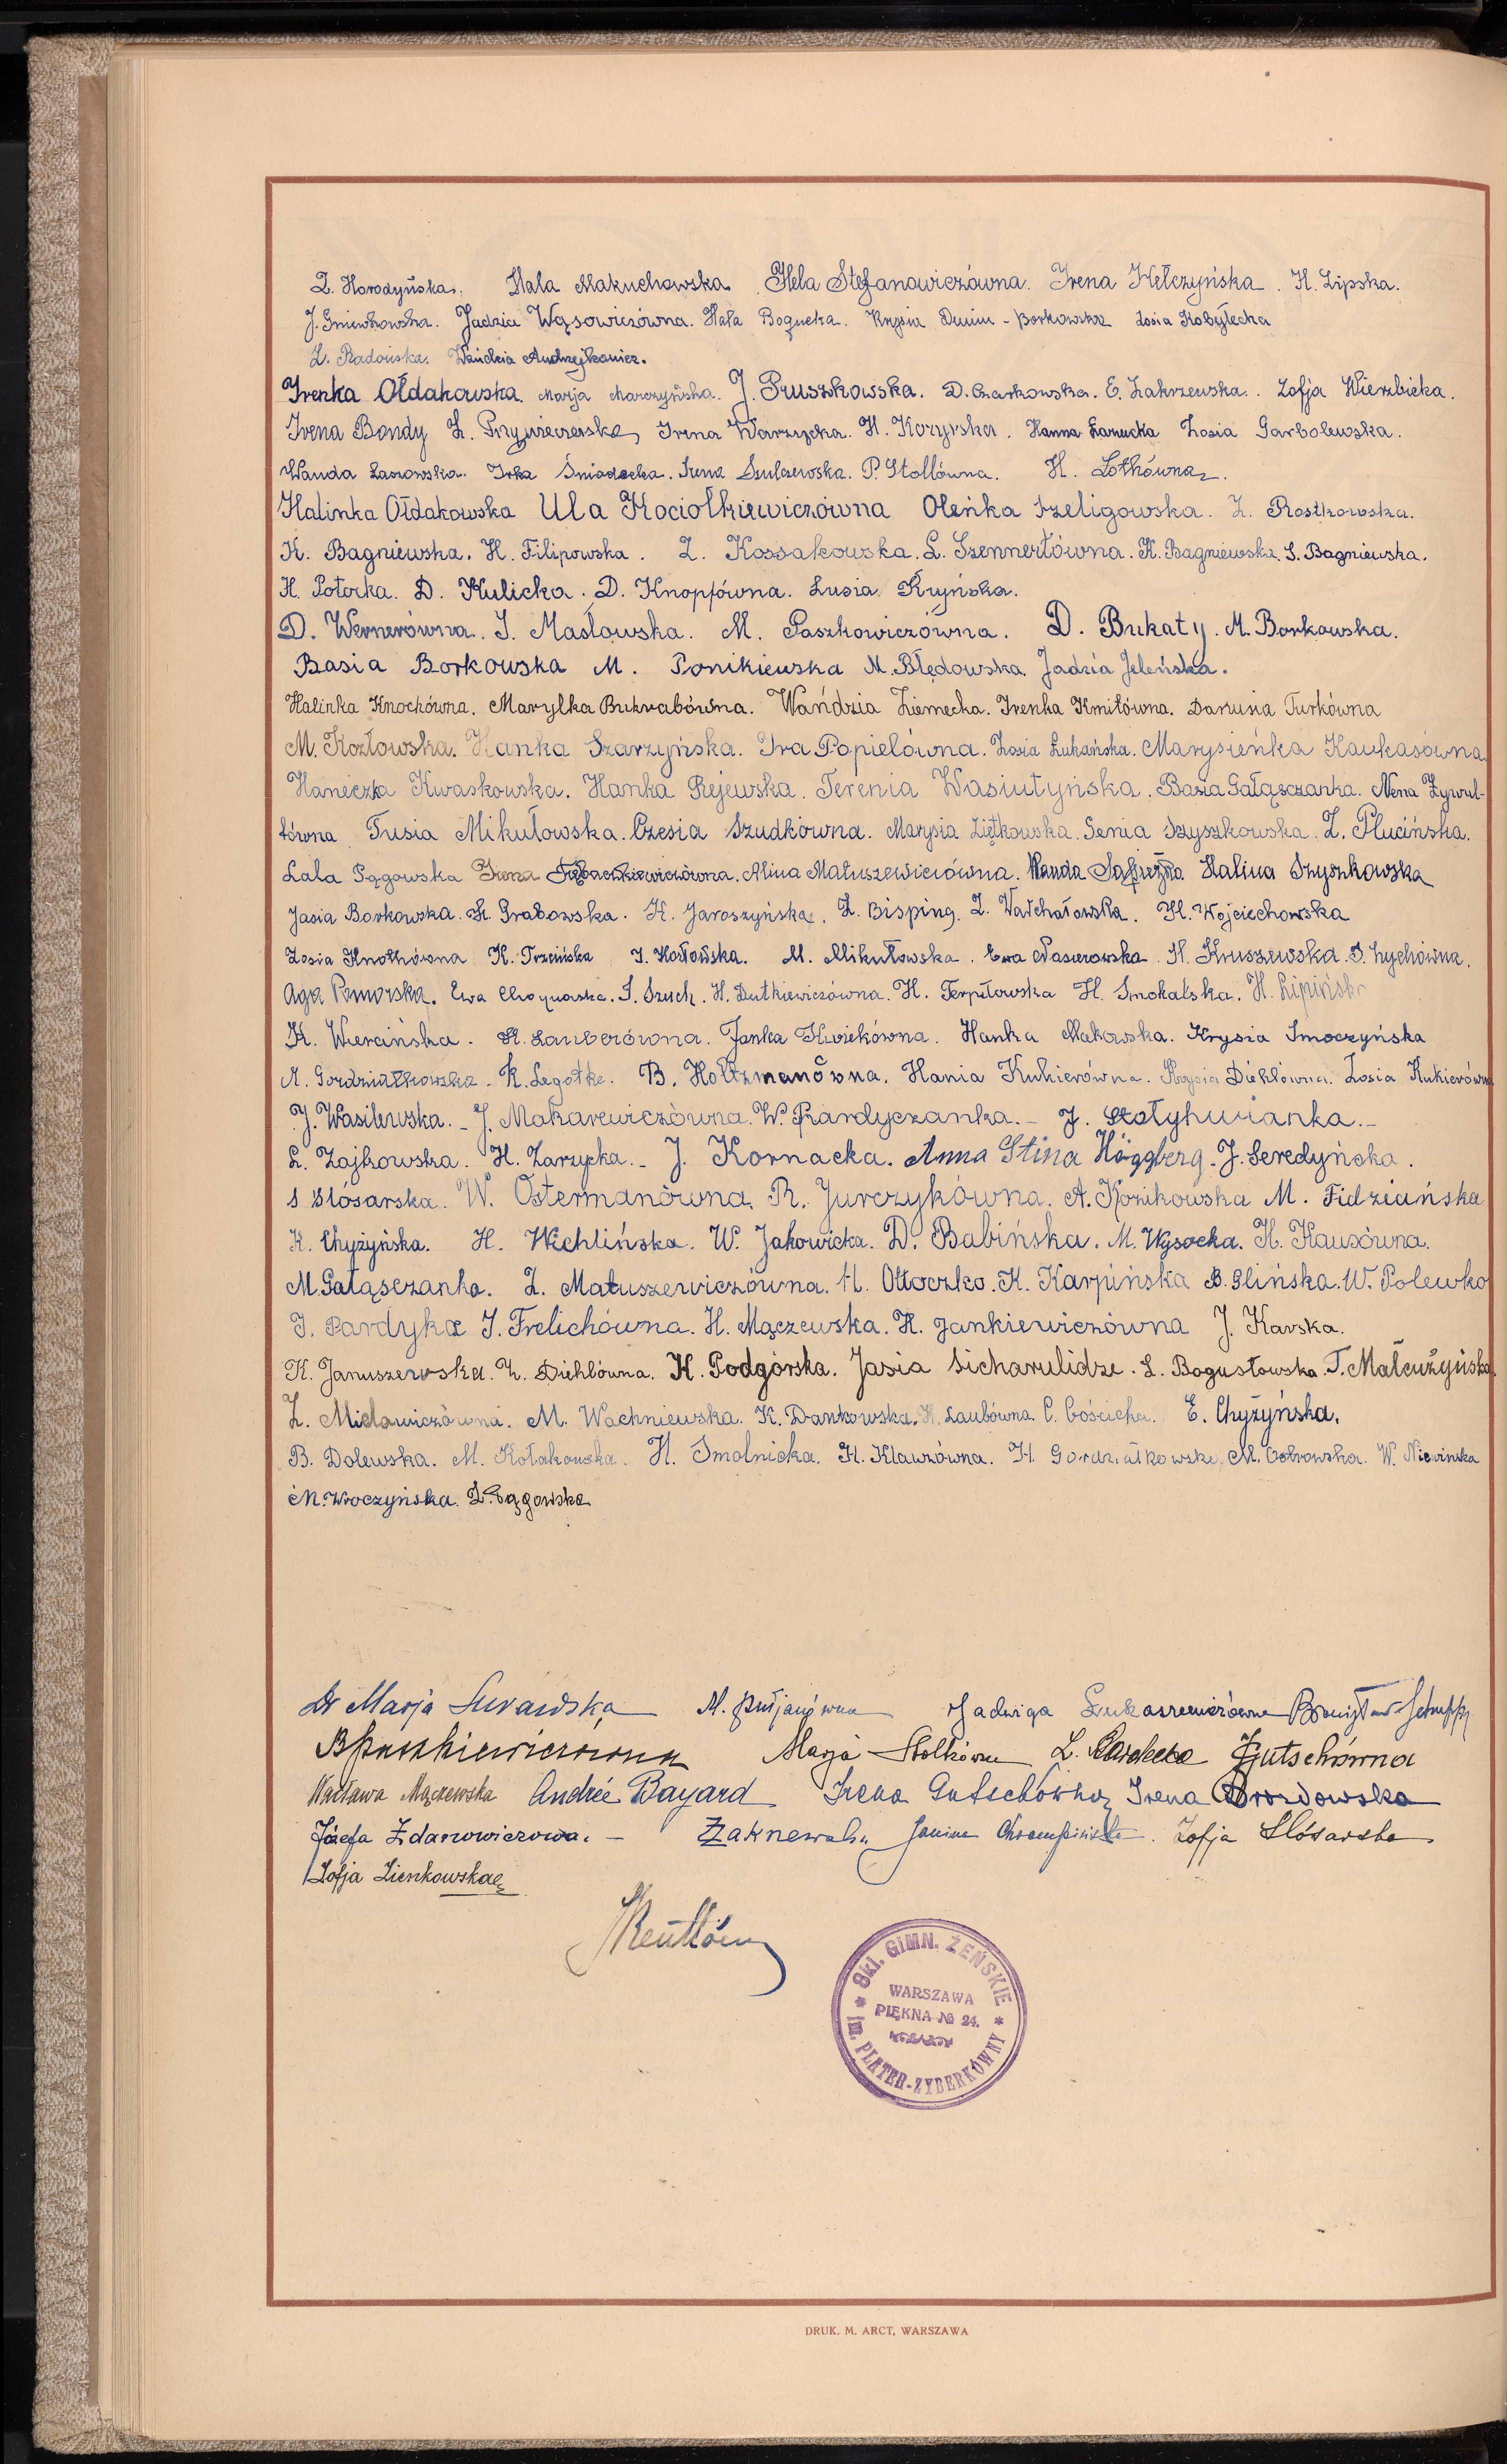 Z. Horodyńska. Hala Makuchowska Hela Stefanowiczówna. Irena Kełczyńska. H. Lipska.
J. Gniewkowska. Jadzia Wąsowiczówna. Hala Bogucka. Krysia Dunin-Borkowska Zosia Kobyłecka
Z. Radońska. Wandzia Andrzejkowicz.
Irenka Ołdakowska. Marja Marczyńska. J. Pruszkowska. D. Czarkowska. E. Zakrzewska. Zofja Wierzbicka.
Irena Bondy Z. Irena Warzycka. H. Kozyrska. Hanna Zosia Garbolewska.
Wanda Lasowska. Irka Śniadecka. Irena Szulczewska. P. Stollówna. H. Lothówna.
Halinka Ołdakowska Ula Kociołkiewiczówna Oleńka Szeligowska. Z. Rostkowska.
K. Bagniewska. H. Filipowska. Z. Kossakowska. L. Szennertówna. K. Bagniewska. S. Bagniewska.
H. Potocka. D. Kulicka. D. Knopfówna. Lusia Kryńska.
D. Wernerówna. I. Masłowska. M. Paszkowiczówna. D. Bukaty. M. Borkowska.
Basia Borkowska M. Ponikiewska M. Błędowska Jadzia Jeleńska.
Halinka Knochówna. Marylka Bukrabówna. Wańdzia Ziemecka. Irenka Kmitówna. Danusia Turkówna
M. Kozłowska. Hanka Szarzyńska. Ira Popielówna. Zosia Łukańska. Marysieńka Kaukasówna.
Haneczka Kwaskowska. Hanka Rejewska. Terenia Wasiutyńska. Basia Gałąsczanka. Nena Żywul-
tówna Tusia Mikułowska. Czesia Szudkówna. Marysia Ziętkowska. Genia Szyszkowska. Z. Plucińska.
Lala Pągowska Irena Alina Matuszewiczówna. Wanda Sapieżyna Halina Szyszkowska
Jasia Borkowska. H. Grabowska. K. Jaroszyńska. Z. Bisping. Z. Wałchałowska. H. Wojciechowska
Zosia Knothówna K. Trzcińska I. Kozłońska. M. Mikułowska. Ewa Nasierowska. H. Kruszewska. I. Zychówna.
Aga Pomorska. Ewa Choynowska. I. Szuch. H. Dutkiewiczówna. H. Terpiłowska H. Smokalska. H. Lipińska
K. Wiercińska. H. Lauberówna. Janka Kwiekówna. Hanka Makowska. Krysia Smoczyńska
A. Gordziałkowska. K. Legotke. B. Holtzmanówna. Hania Kukierówna. Krysia Diehlówna. Zosia Kukierówna
J. Wasilewska. - J. Makarewiczówna. W. Pardyczanka. - J. Stołyhwianka. -
L. Zajkowska. H. Zarzycka. - J. Kornacka. Anna Stina Höggberg. J. Seredyńska.
S Slósarska. W. Ostermanówna. R. Jurczykówna. A. Konikowska M. Fidziańska
K. Chyżyńska. H. Wichlińska. W. Jakowicka. D. Babińska. M. Wysocka. H. Klauzówna.
M. Gałąsczanka. Z. Matuszewiczówna. H. Ottoczko. K. Karpińska B. Glińska. W. Polewko
I. Pardyka I. Frelichówna. H. Mączewska. H. Jankiewiczówna J. Karska.
K. Januszewska. Z. Diehlówna. K. Podgórska. Jasia Sicharulidze. L. Bogusławska. T. Małcużyńska.
Z. Mielawiczówna. M. Wachniewska. K. Dankowska. H. Laubówna. C. Gościcka. E. Chyżyńska.
B. Dolewska. M. Kołakowska. H. Smolnicka. H. Klauzówna. H. Gordziałkowska. M. Ostrowska. W. Niewińska
M. Wroczyńska. Z. Pągowska
Dr Marja M. Pułjanówna Jadwiga Łukaszewiczówna Bronisław
Marja L. Gutschówna
Wacława Mączewska Andrée Bayard Irena Gutschówna Irena Drozdowska
Józefa Żdanowiczowa. - Janina Zofja Slósarska
Zofja Zienkowska
Skł. GIMN. ŻEŃSKIE
WARSZAWA
PIĘKNA № 24.
im. PLATER-ZYBERKÓWNY
DRUK. M. ARCT, WARSZAWA